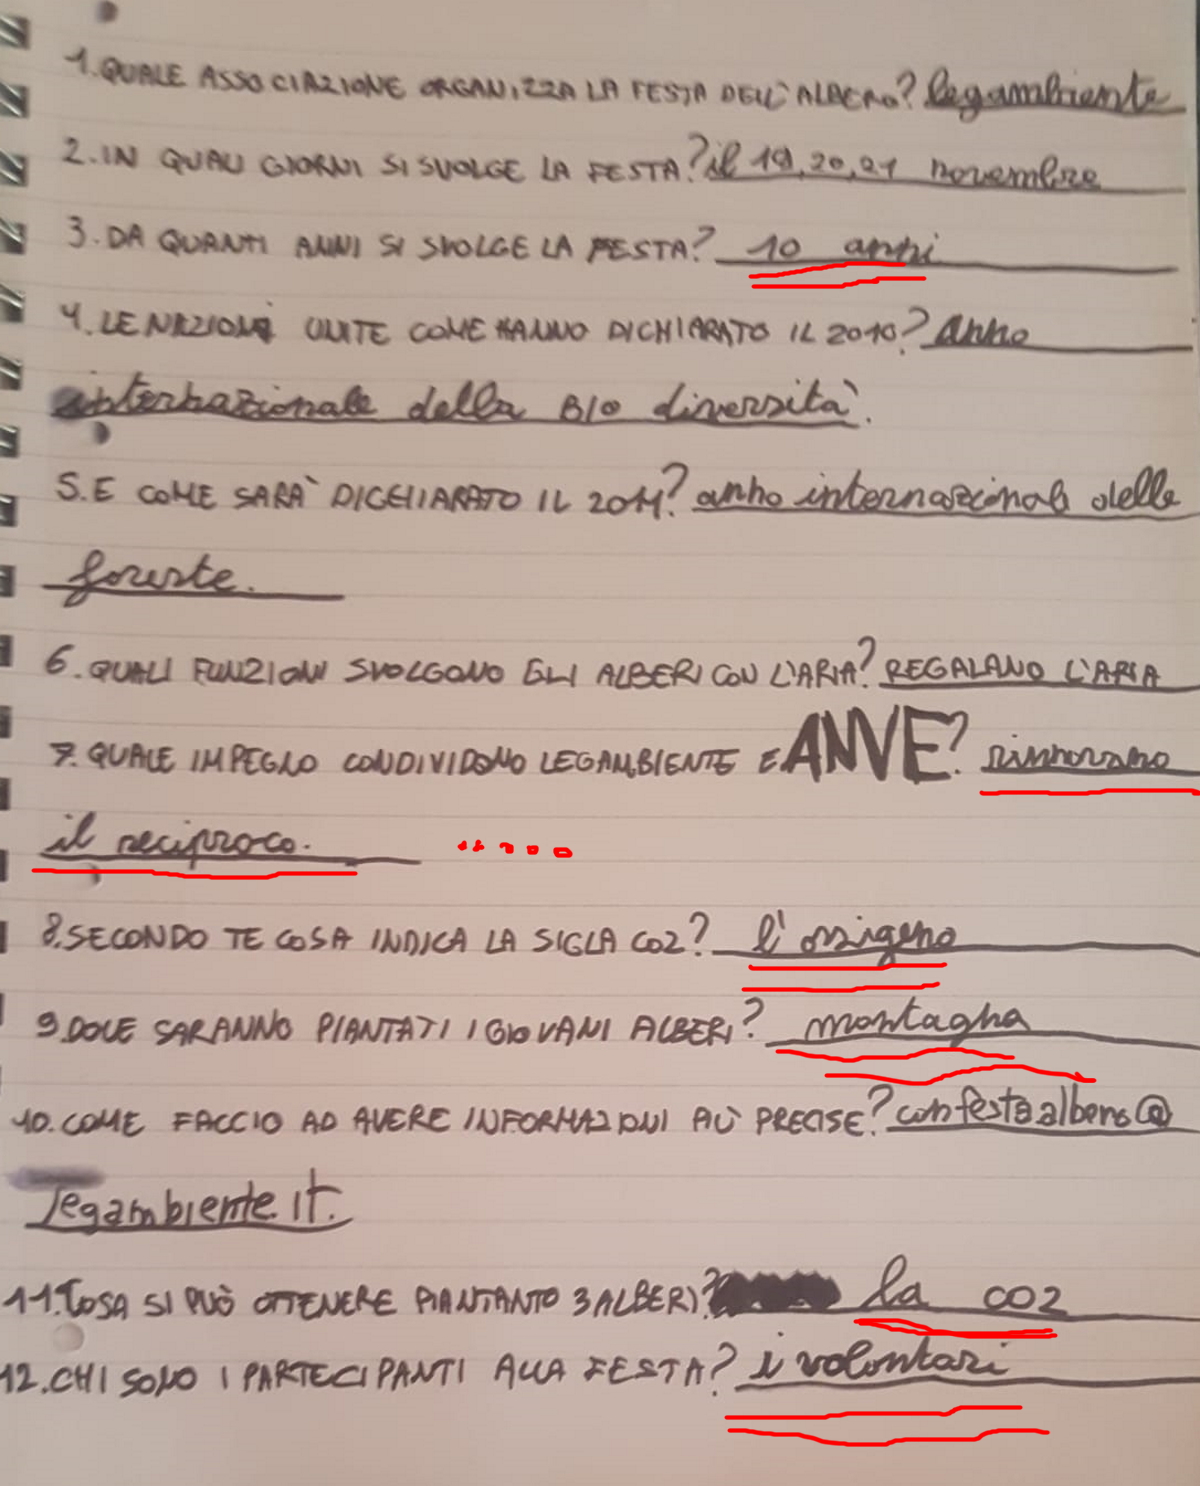 1. QUALE ASSOCIAZIONE ORGANIZZA LA FESTA DELL'ALBERO? legambiente
2. IN QUALI GIORNI SI SVOLGE LA FESTA? il 19, 20, 21 novembre
3. DA QUANTI ANNI SI SVOLGE LA FESTA? 10 anni
4. LE NAZIONI UNITE COME HANNO DICHIARATO IL 2010? anno
internazionale della BIO diversità.
5. E COME SARÀ DICHIARATO IL 2011? anno internazionale delle
foreste.
6. QUALI FUNZIONI SVOLGONO GLI ALBERI CON L'ARIA? REGALANO L'ARIA
7. QUALE IMPEGNO CONDIVIDONO LEGAMBIENTE E ANVE? rinnovano
il reciproco. .....
8. SECONDO TE COSA INDICA LA SIGLA CO2? l'ossigeno
9. DOVE SARANNO PIANTATI I GIOVANI ALBERI? montagna
10. COME FACCIO AD AVERE INFORMAZIONI PIÙ PRECISE? con festa albero@
legambiente.it.
11. COSA SI PUÒ OTTENERE PIANTANTO 3 ALBERI? la CO2
12. CHI SONO I PARTECIPANTI ALLA FESTA? i volontari